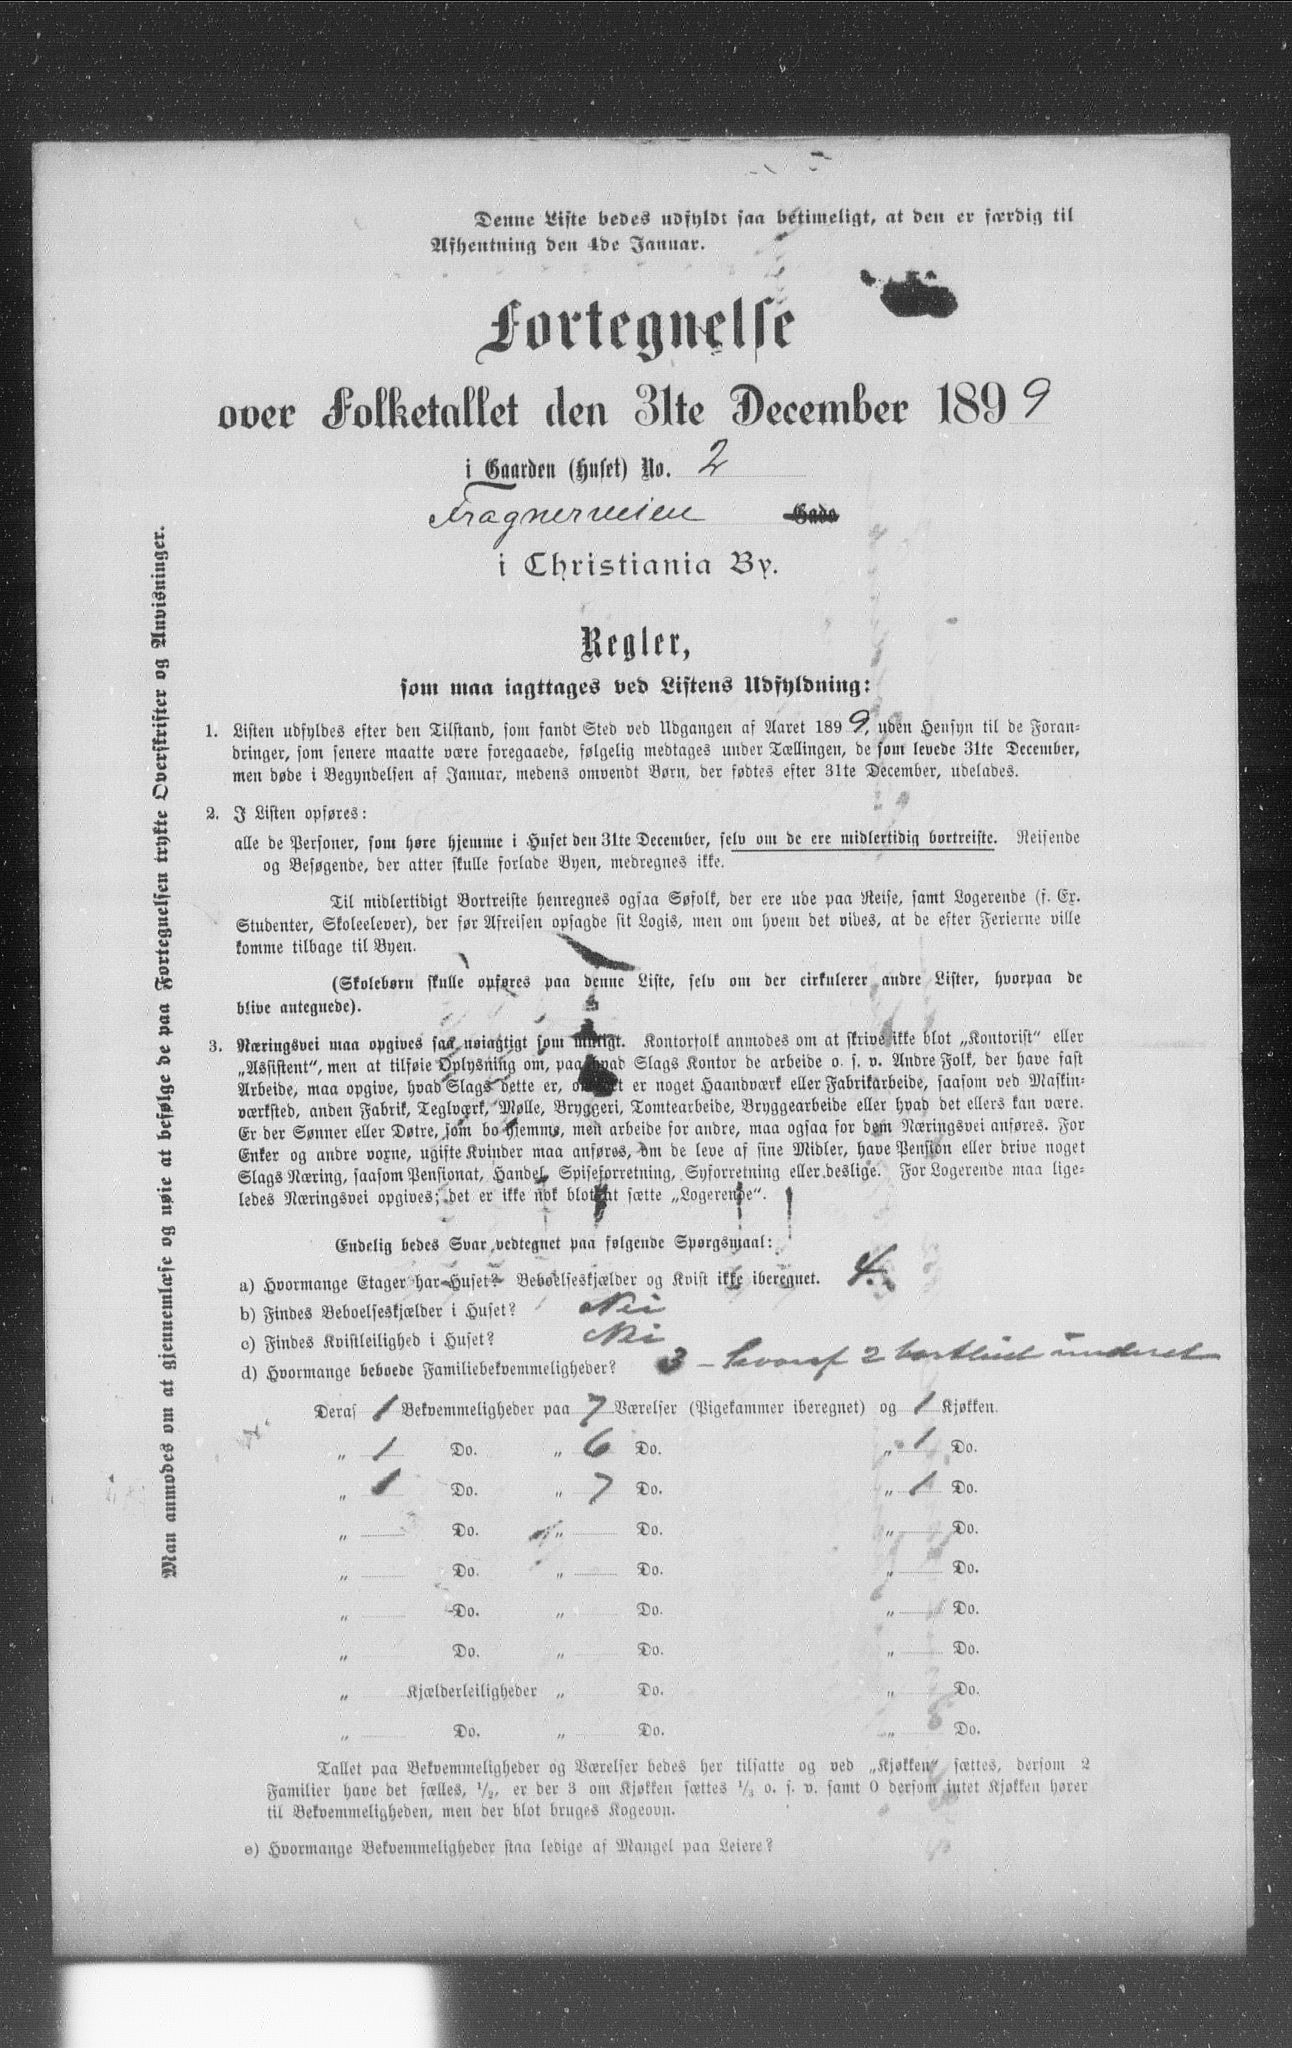 Denne Liste bedes udfyldt saa betimeligt, at den er færdig til
Afhentning den 4de Januar.
Fortegnelse
over Folketallet den 31te December 1899
i Gaarden (Huset) No. 2
Fragnerveien Gade
i Christiania By.
Regler,
som maa iagttages ved Listens Udfyldning:
1. Listen udfyldes efter den Tilstand, som fandt Sted ved Udgangen af Aaret 1899, uden Hensyn til de Foran-
dringer, som senere maatte være foregaaede, følgelig medtages under Tællingen, de som levede 31te December,
men døde i Begyndelsen af Januar, medens omvendt Børn, der fødtes efter 31te December, udelades.
2. I Listen opføres:
alle de Personer, som høre hjemme i Huset den 31te December, selv om de ere midlertidig bortreiste. Reisende
og Besøgende, der atter skulle forlade Byen, medregnes ikke.
Til midlertidigt Bortreiste henregnes ogsaa Søfolk, der ere ude paa Reise, samt Logerende (f. Ex.
Studenter, Skoleelever), der før Afreisen opsagde sit Logis, men om hvem det vides, at de efter Ferierne ville
komme tilbage til Byen.
(Skolebørn skulle opføres paa denne Liste, selv om der cirkulerer andre Lister, hvorpaa de
blive antegnede).
3. Næringsvei maa opgives saa nøiagtigt som muligt. Kontorfolk anmodes om at skrive ikke blot „Kontorist“ eller
„Assistent“, men at tilføie Oplysning om, paa hvad Slags Kontor de arbeide o. s. v. Andre Folk, der have fast
Arbeide, maa opgive, hvad Slags dette er, om det er noget Haandværk eller Fabrikarbeide, saasom ved Maskin-
værksted, anden Fabrik, Teglværk, Mølle, Bryggeri, Tomtearbeide, Bryggearbeide eller hvad det ellers kan være.
Er der Sønner eller Døtre, som bo hjemme, men arbeide for andre, maa ogsaa for dem Næringsvei anføres. For
Enker og andre voxne, ugifte Kvinder maa anføres, om de leve af sine Midler, have Pension eller drive noget
Slags Næring, saasom Pensionat, Handel, Spiseforretning, Syforretning eller deslige. For Logerende maa lige-
ledes Næringsvei opgives; det er ikke nok blot at sætte „Logerende“.
Endelig bedes Svar vedtegnet paa følgende Spørgsmaal:
a) Hvormange Etager har Huset? Beboelseskjælder og Kvist ikke iberegnet. 4.
b) Findes Beboelseskjælder i Huset? Nei
c) Findes Kvistleilighed i Huset? Nei
d) Hvormange beboede Familiebekvemmeligheder? 3 – hvoraf 2
Deraf 1 Bekvemmeligheder paa 7 Værelser (Pigekammer iberegnet) og 1 Kjøkken.
„ 1 Do. „ 6 Do. „ 1 Do.
„ 1 Do. „ 7 Do. „ 1 Do.
„ Do. „ Do. „ Do.
„ Do. „ Do. „ Do.
„ Do. „ Do. „ Do.
„ Do. „ Do. „ Do.
„ Kjælderleiligheder „ Do. „ Do.
„ Do. „ Do. „ Do.
Tallet paa Bekvemmeligheder og Værelser bedes her tilsatte og ved „Kjøkken“ sættes, dersom 2
Familier have det fælles, 1/2, er der 3 om Kjøkken sættes 1/3 o. s. v. samt 0 dersom intet Kjøkken hører
til Bekvemmeligheden, men der blot bruges Kogeovn.
e) Hvormange Bekvemmeligheder staa ledige af Mangel paa Leiere?
Man anmodes om at gjennemlæse og nøie at befølge de paa Fortegnelsen trykte Overskrifter og Anvisninger.